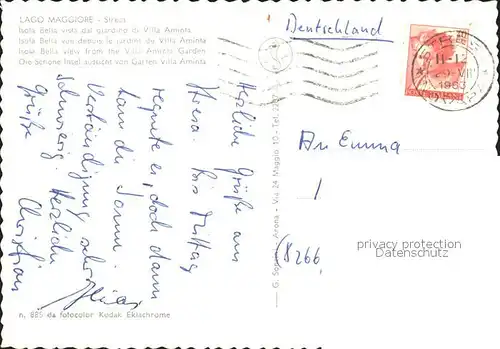 LAGO MAGGIORE - Stresa
Isola Bella vista dal giardino di Villa Aminta
Isola Bella vue depuis le jardin de Villa Aminta
Isola Bella view from the Villa Aminta Garden
Die Schöne Insel aussicht von Garten Villa Aminta
Deutschland
11-12
VIII
1963
Herzliche Grüße aus
Stresa. Bis Mittag
regnete es, doch dann
kam die Sonne.
Verständigung sehr
schwierig. Herzliche
Grüße Christian
An Emma
1
(8266
privacy protection
Datenschutz
Via 24 Maggio 10 - Tel.
n. 885 da fotocolor Kodak Ektachrome